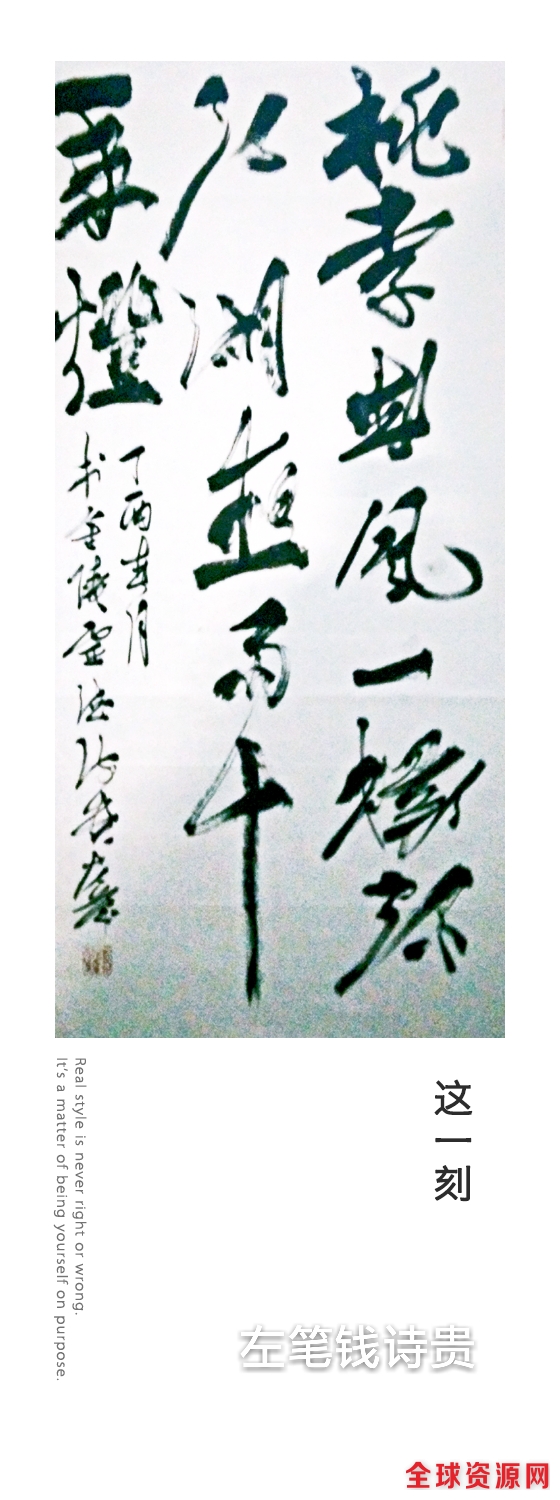 桃李春風一
江湖夜雨十
年燈
丁酉春月
书
这一刻
Real style is never right or wrong.
It's a matter of being yourself on purpose.
左笔钱诗贵
全球资源网